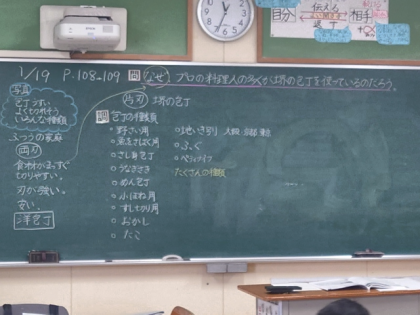 自分 伝える 相手
1/19 P.108~109 問 なぜ プロの料理人の多くが堺の包丁を使っているのだろう。
写真
包丁うすい
よくもつれそう
いろんな種類
ふつうの家庭
両刃
食材がまっすぐ
切りやすい。
刃が強い。
安い。
洋包丁
片刃 堺の包丁
調 包丁の種類
○野さい用
○魚をさばく用
○さし身包丁
○うなぎさき
○めん包丁
○小ばね用
○すし切り用
○おかし
○たこ
○地いき別 大阪 京都 東京
○ふぐ
○ペティナイフ
たくさんの種類